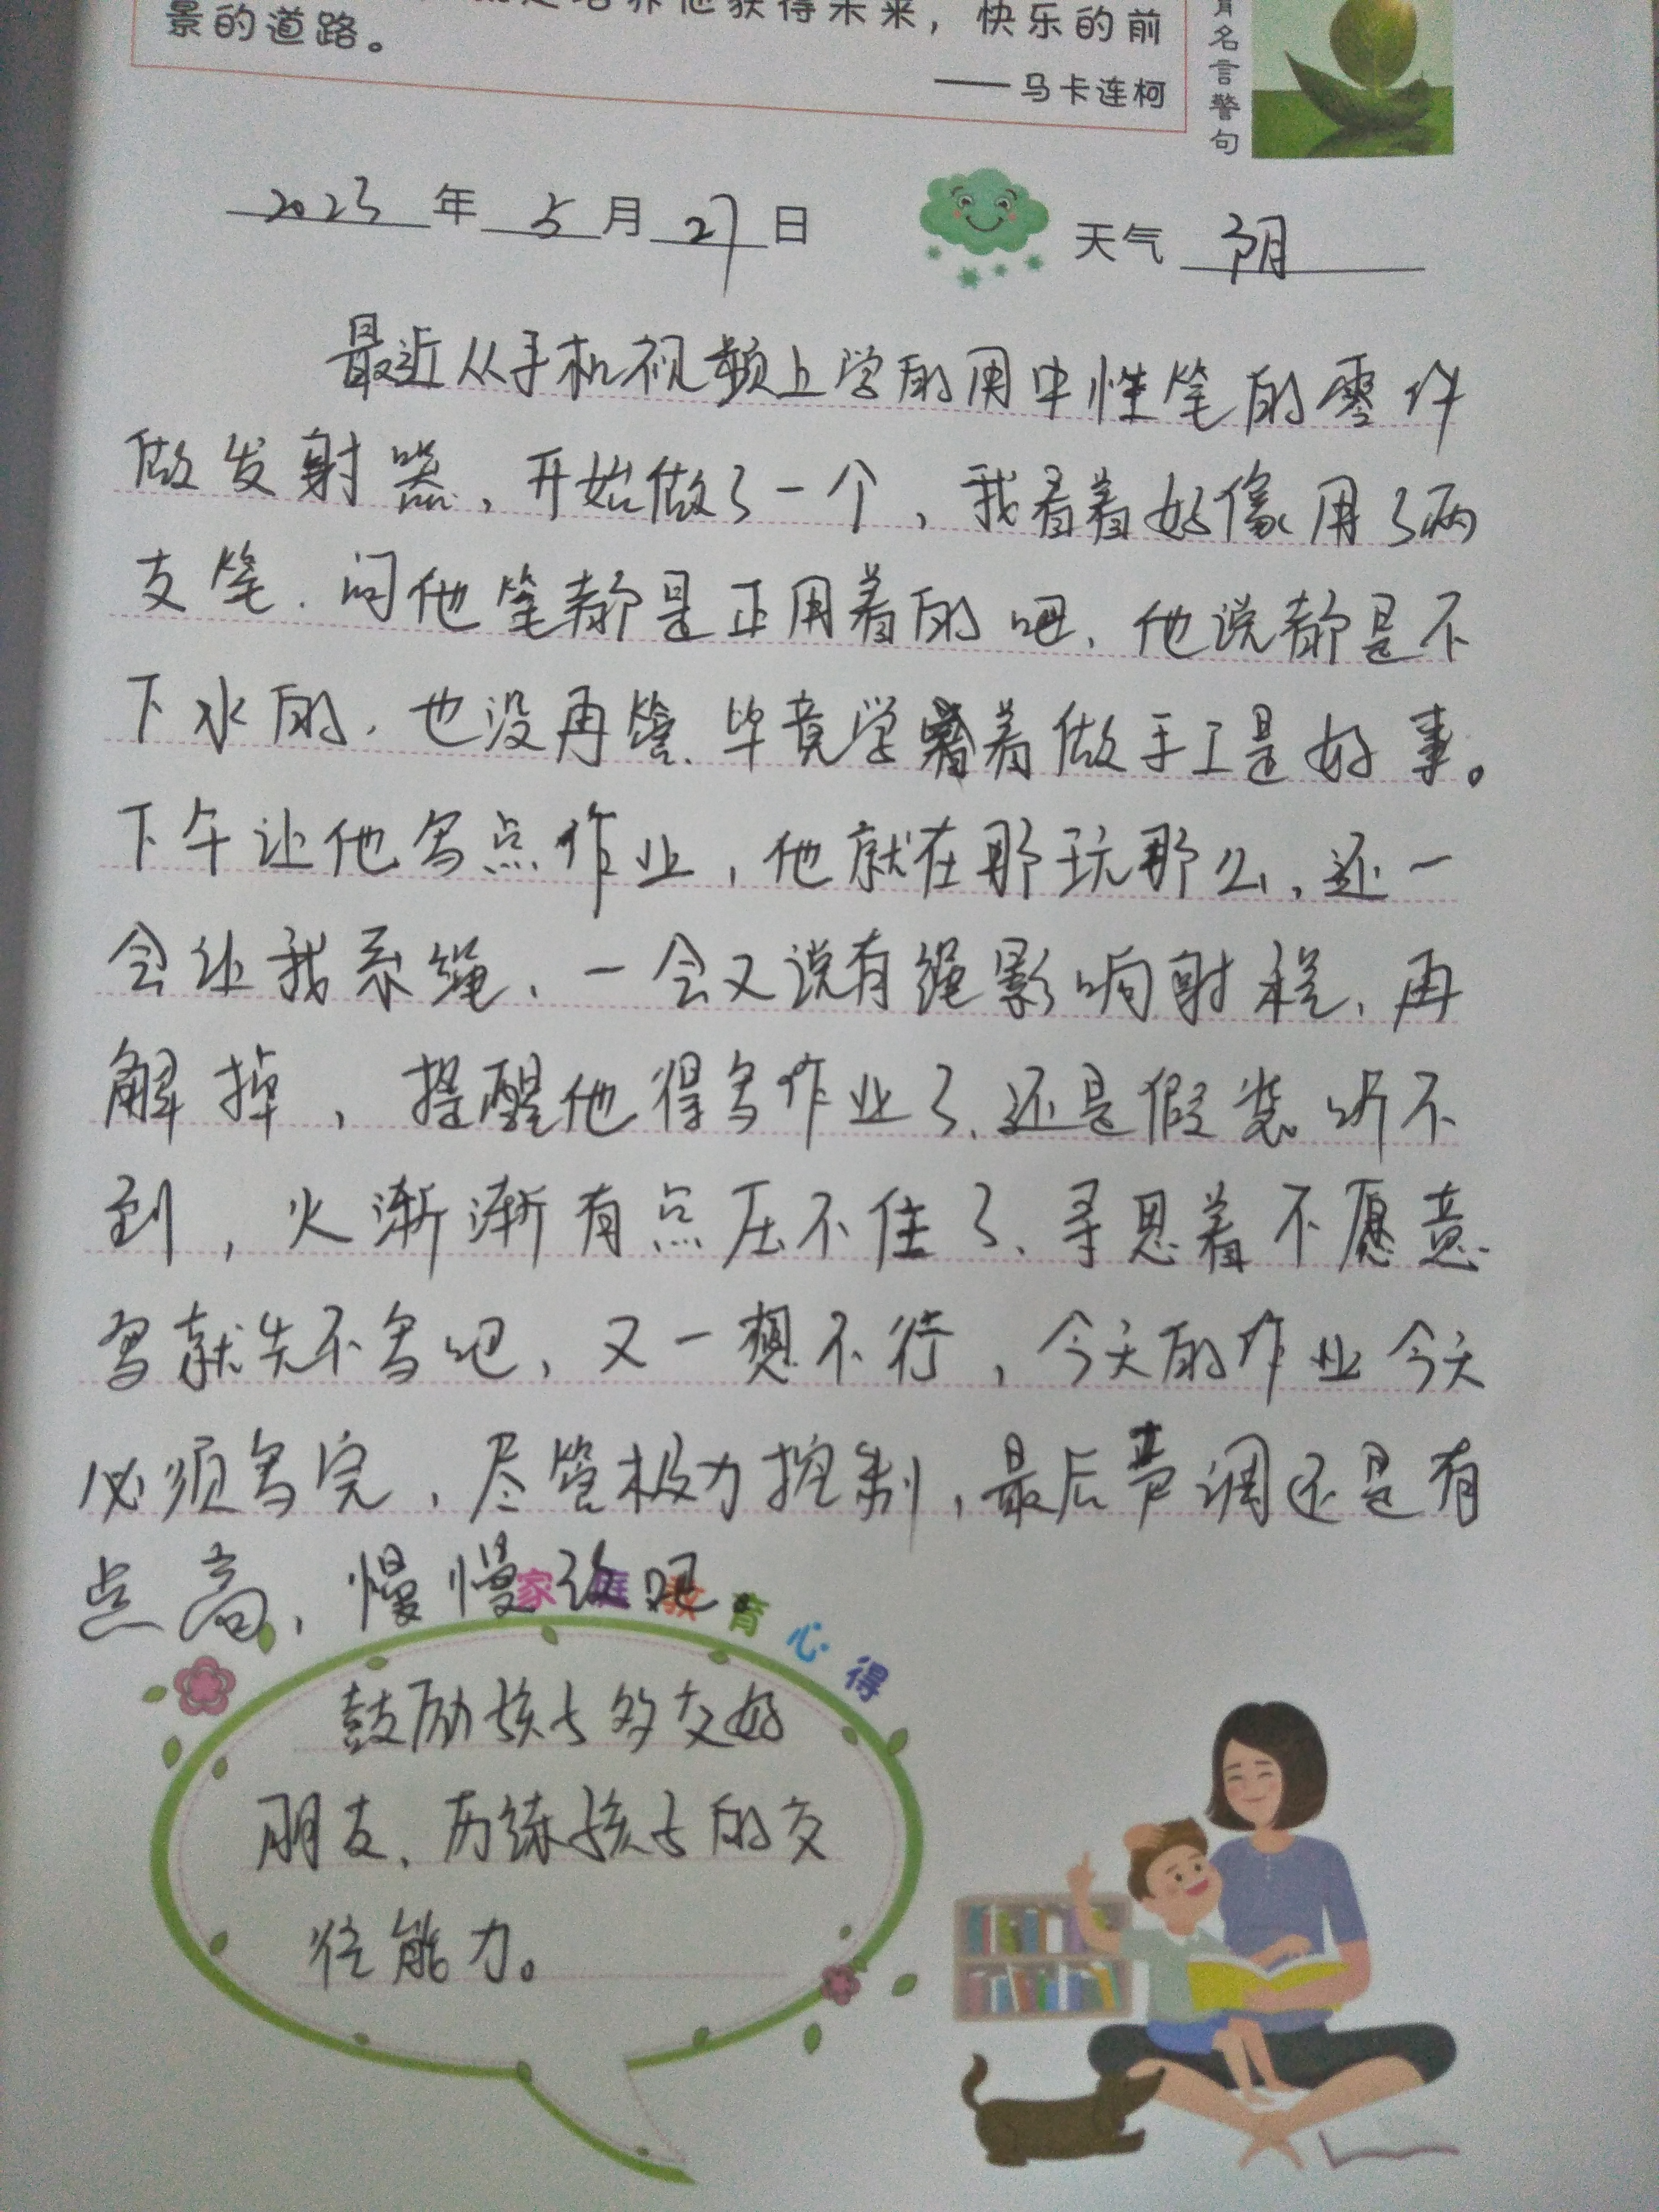 养他获得未来，快乐的前
景的道路。
——马卡连柯
育名言警句
2023年5月27日
天气 阴
最近从手机视频上学的用中性笔的零件
做发射器，开始做了一个，我看着好像用了两
支笔，问他笔都是正用着的吧，他说都是不
下水的，也没再管，毕竟学着做手工是好事。
下午让他写点作业，他就在那玩那么，还一
会让我系绳，一会又说有绳影响射程，再
解掉，提醒他得写作业了，还是假装听不
到，火渐渐有点压不住了，寻思着不愿意
写就先不写吧，又一想不行，今天的作业今天
必须写完，尽管极力控制，最后声调还是有
点高，慢慢改吧。
家庭教育心得
鼓励孩子多交好
朋友，历练孩子的交
往能力。